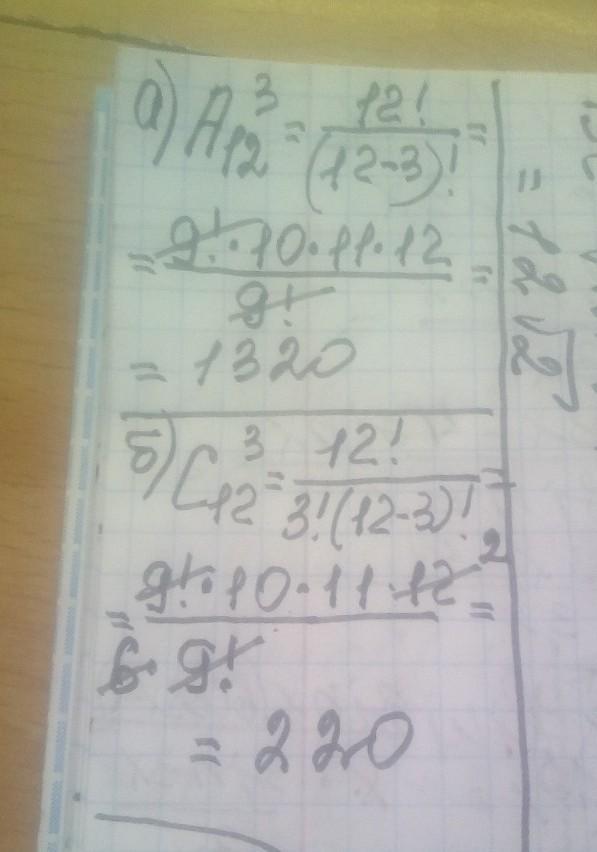 а) A₁₂³ = 12! / (12-3)! =
= 9! · 10 · 11 · 12 / 9! =
= 1320
б) C₁₂³ = 12! / 3!(12-3)! =
= 9! · 10 · 11 · 12 ² / 6 · 9! =
= 220
= 12√2